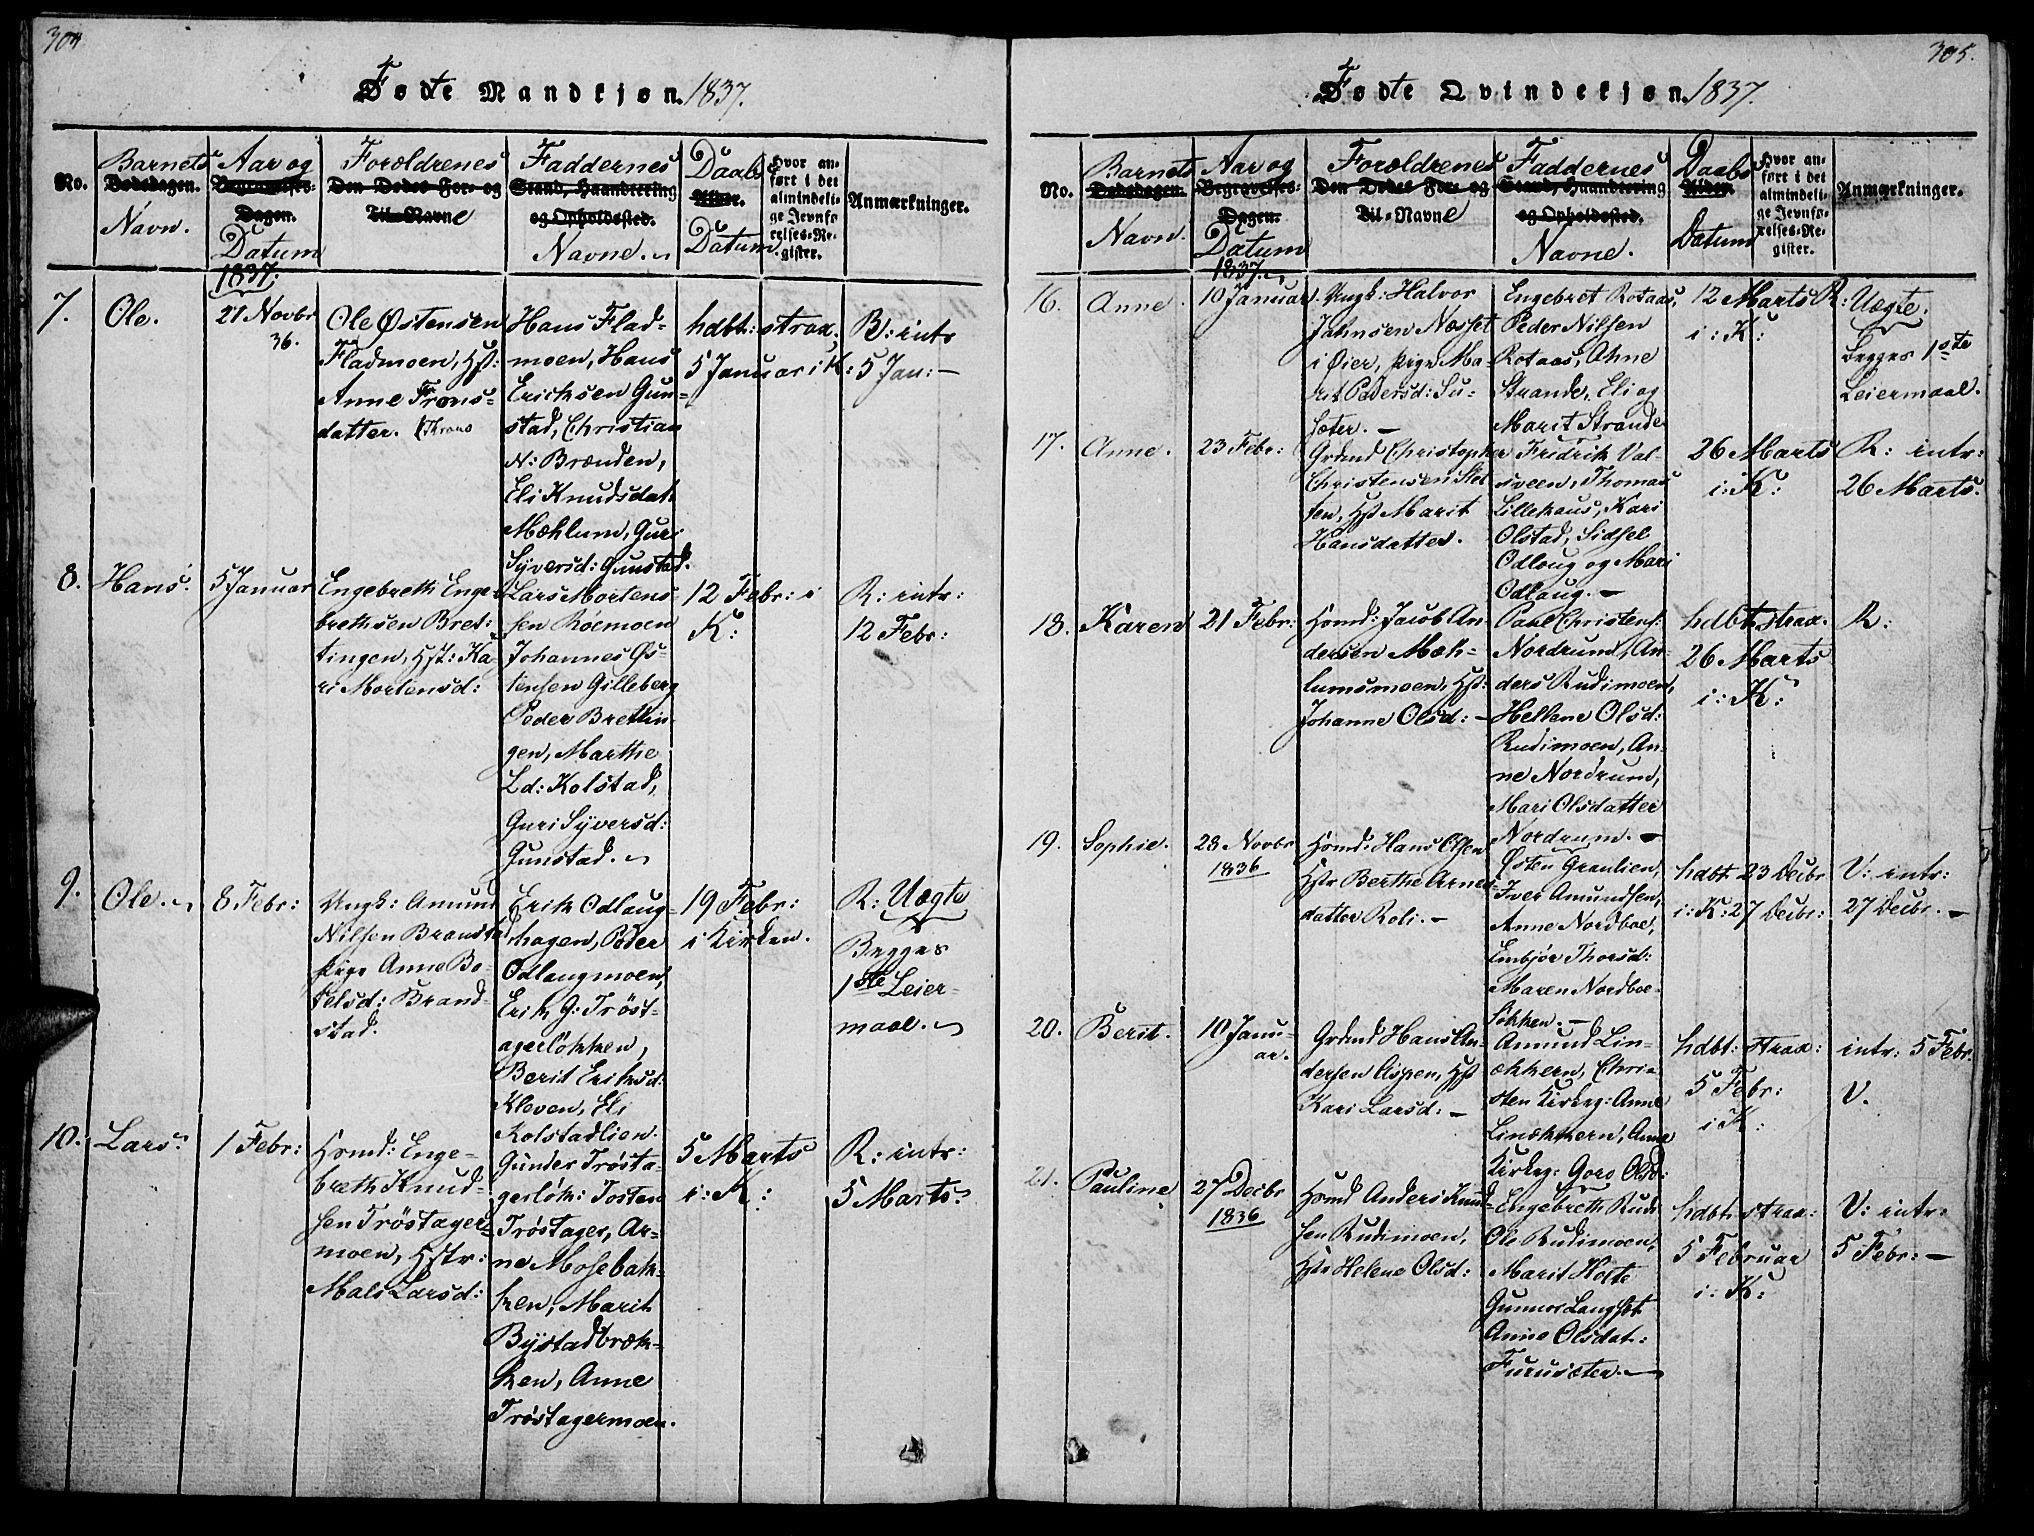 304
Fødte Mandkjøn. 1837.
No.
Barnets
Dødsdagen.
Navn.
Aar og
Begravelses-
Dagen.
Datum
Forældrenes
Den Dødes For- og
Til-Navne
Faddernes
Stand, Haandtering
og Opholdssted.
Navne.
Daabs
Alder.
Datum.
Hvor an-
ført i det
almindeli-
ge Jevnfø-
relses-Re-
gister.
Anmærkninger.
1837.
7.
Ole.
21 Novbr
36.
Ole Østensen
Fladmoen, Hst:
Anne Frons-
datter. (Throns
Hans Flad-
moen, Hans
Ericksen Gun-
stad, Christian
N: Brænden,
Eli Knudsdat:
Mæhlum, Guri
Syversd: Gunstad.
hdbt: strax,
5 Januar i K:
B: intr
5 Jan: –
8.
Hans.
5 Januar
Engebreth Enge-
brethsen Bret-
tingen, Hst: Ka-
ri Mortensd:
Lars Mortens-
sen Roemoen
Johannes Øs-
tensen Gilleberg
Peder Brettin-
gen, Marthe
Ld: Kolstad,
Guri Syversd:
Gunstad.
12 Febr: i
K:
R: intr:
12 Febr:
9.
Ole.
8 Febr:
Ungk: Amund
Nilsen Brandstad
pige Anne Bo-
telsd: Brand-
stad.
Erik Odlaug-
hagen, Peder
Odlaugmoen,
Erik G: Tröst-
agerlökken,
Berit Eriksd:
Kleven, Eli
Kolstadlien.
19 Febr:
i Kirken.
R: Uægte
Begges
1ste Leier-
maal.
10.
Lars.
1 Febr:
Hømd: Enge-
breth Knud-
sen Tröstager-
moen, Hstr:
Mali Larsd:
Gunder Trösta-
gerløk: Tosten
Tröstager, Ar-
ne Mosebak-
ken, Marit
Bystadbræk-
ken, Anne
Tröstagermoen.
5 Marts
i: K:
R: intr:
5 Marts.
305.
Fødte Qvindekjøn. 1837.
No.
Barnets
Dødsdagen.
Navn.
Aar og
Begravelses-
Dagen.
Datum
Forældrenes
Den Dødes For- og
Til-Navne
Faddernes
Stand, Haandtering
og Opholdssted.
Navne.
Daabs
Alder.
Datum
Hvor an-
ført i det
almindeli-
ge Jevnfø-
relses-Re-
gister.
Anmærkninger.
1837.
16.
Anne.
10 Januar
Ungk: Halvor
Jahnsen Næsset
i Øier, pige Ma-
rit Pedersd: Su-
sæter. –
Engebret Rotaas,
Peder Nilsen
Rotaas, Ahne
Strande, Eli og
Marit Strande
12 Marts
i: K:
R: Uægte.
begges 1ste
Leiermaal.
17.
Anne.
23 Febr:
Grdmd Christopher
Christensen Stel-
ten, Hst Marit
Hansdatter.
Fridrik Val-
sveen, Thomas
Lillehaus, Kari
Olstad, Sidsel
Odlaug og Mari
Odlaug. –
26 Marts
i: K:
R: intr:
26 Marts.
18.
Karen
21 Febr:
Hømd: Jacob An-
dersen Mæh-
lumsmoen, Hst:
Johanne Olsd: –
Paul Christens:
Nordrum, An-
ders Rudimoen,
Hellene Olsd:
Rudimoen, An-
ne Nordrum,
Mari Olsdatter
Nordrum. –
hdbt strax.
26 Marts
i: K:
R:
19.
Sophie.
28 Novbr
1836
Hømd: Hans Olsen
Hstr Berthe Arnes-
datter Roli. –
Østen Graulien,
Iver Amundsen,
Anne Nordboe,
Embjør Thorsd:
Maren Nordboe-
løkken. –
hdbt 23 Decbr
i: K: 27 Decbr:
V: intr:
27 Decbr. –
20.
Berit.
10 Janu-
ar.
Grdmd Hans An-
dersen Aspen, Hst
Kari Larsd: –
Amund Lin-
ækkern, Chri-
sten Kirkeg: Anne
Linækkern, Anne
Kirkeg: Goro Olsd:
hdbt: strax:
5 Febr:
i K:
intr: 5 Febr.
V.
21.
Pauline
27 Decbr
1836
Hømd Anders Knud-
sen Rudimoen,
Hstr Helene Olsd:
Engebreth Rudi
Ole Rudimoen,
Marit Holte
Gunnor Langset
Anne Olsdat:
Furusæter. –
hdbt. strax:
5 Februar
i: K:
V: intr:
5 Febr: –